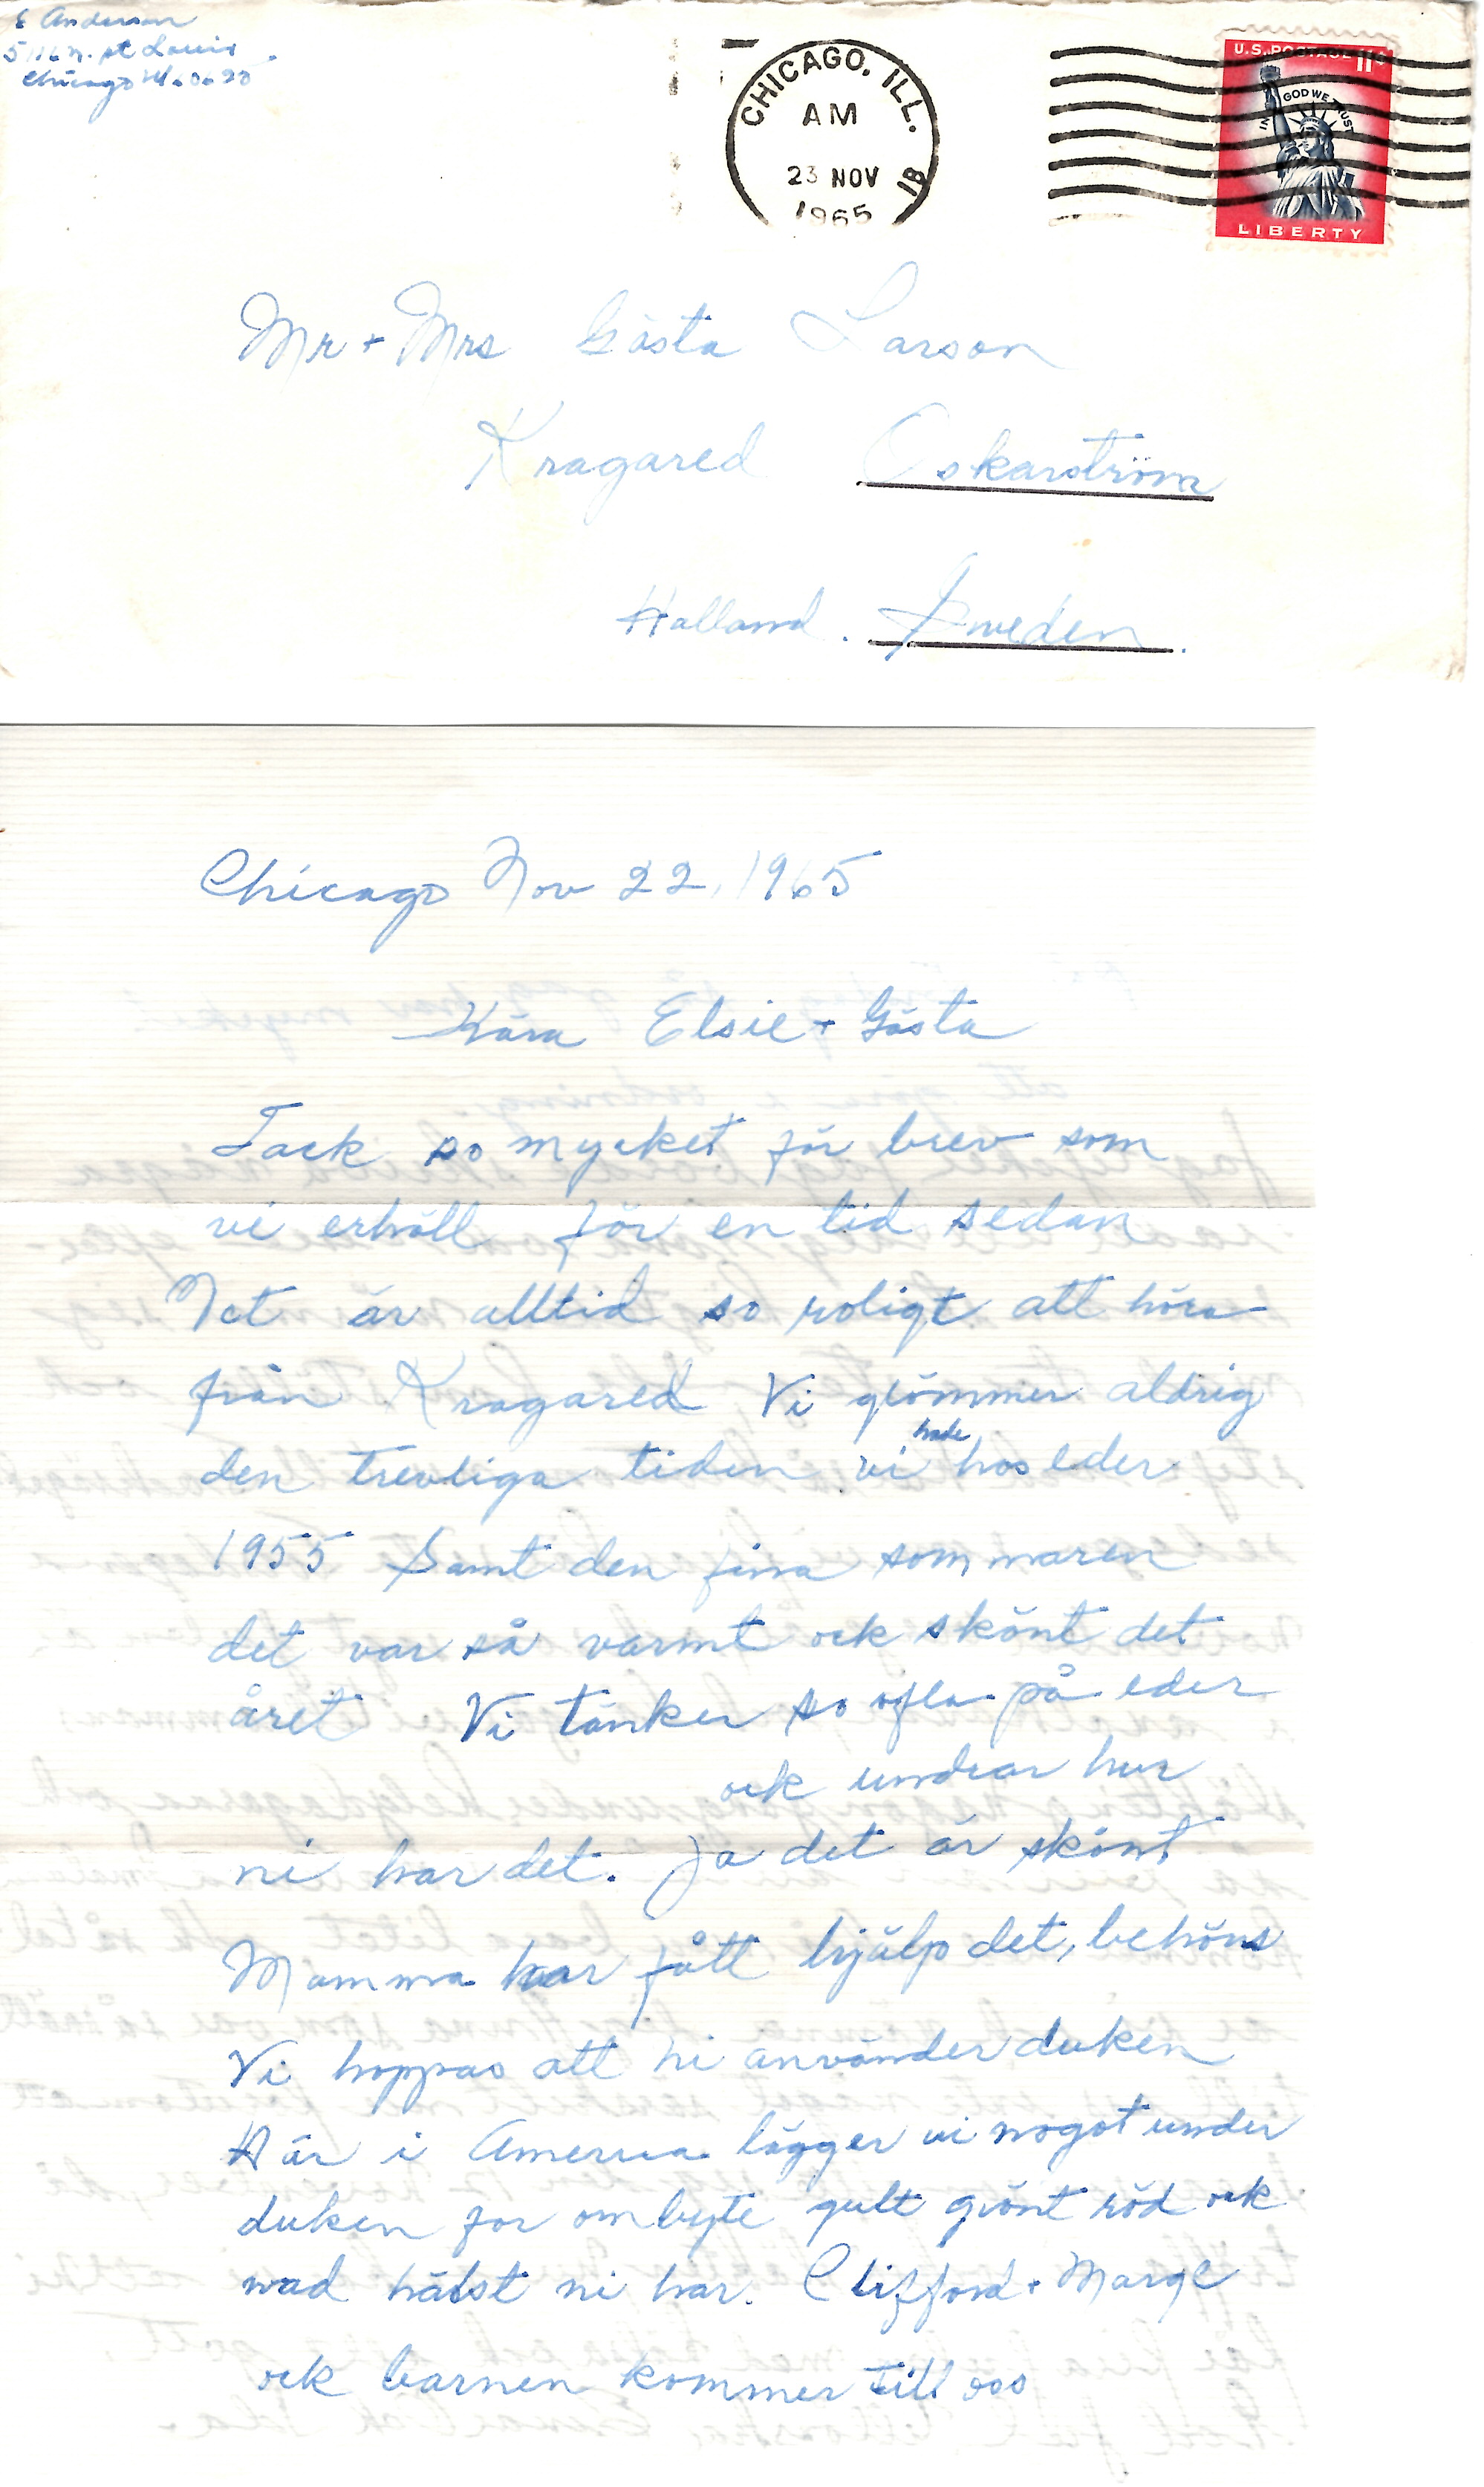 E Anderson
5116 N. St Louis
Chicago Ill. 60625
CHICAGO, ILL.
AM
23 NOV 18
1965
U.S. POSTAGE 11¢
IN GOD WE TRUST
LIBERTY
Mr + Mrs Gösta Larson
Kragared Oskarström
Halland. Sweden.
Chicago Nov 22, 1965
Kära Elsie + Gösta
Tack so mycket för brev som
vi erhöll för en tid sedan
Det är alltid so roligt att höra
från Kragared Vi glömmer aldrig
den trevliga tiden vi hade hos eder
1955 Samt den fina sommaren
det var så varmt ock skönt det
året Vi tänker so ofta på eder
ock undrar hur
ni har det. Ja det är skönt
Mamma har fått hjälp det, behövs
Vi hoppas att ni använder duken
Här i America lägger vi nogot under
duken for ombyte gult grönt röd ock
wad hälst ni har. Clifford + Marge
ock barnen kommer till oss